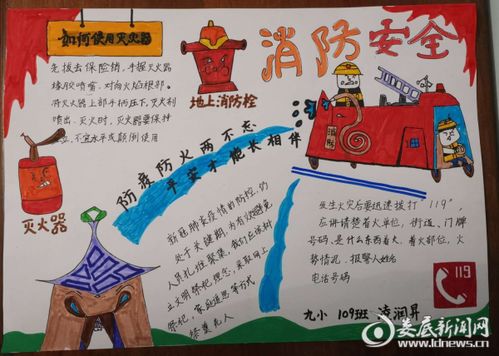 如何使用灭火器
先拔去保险销,手握灭火器
橡胶喷嘴,对向火焰根部.
将灭火器上部手柄压下,灭火剂
喷出.灭火时,灭火器要保持
直立,不宜水平或颠倒使用
灭火器
地上消防栓
消防安全
消防
防疫防火两不忘
平安才能长相伴
新冠肺炎疫情的防控,仍
处于关键期,为有效避免
人员扎班聚集,我们应该树
立文明祭祀理念,采取网上
祭祀,家庭追思等方式
缅怀先人
发生火灾后要迅速拨打"119"。
应讲清楚着火单位,街道、门牌
号码、是什么东西着火、着火部位,火
势情况,报警人姓名
电话号码
119
九小 109班 凌润昇
娄底新闻网
www.ldnews.cn